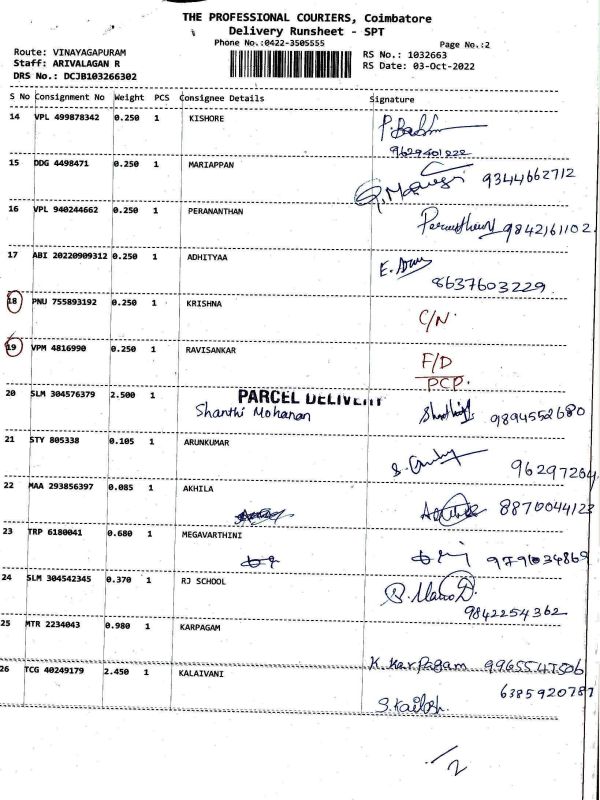 THE PROFESSIONAL COURIERS, Coimbatore
Delivery Runsheet - SPT
Phone No.:0422-3505555 Page No.:2
Route: VINAYAGAPURAM RS No.: 1032663
Staff: ARIVALAGAN R RS Date: 03-Oct-2022
DRS No.: DCJB103266302
S No Consignment No Weight PCS Consignee Details Signature
14 VPL 499878342 0.250 1 KISHORE
9629401222
15 DDG 4498471 0.250 1 MARIAPPAN 9344662712
16 VPL 940244662 0.250 1 PERANANTHAN 9842161102
17 ABI 20220909312 0.250 1 ADHITYAA
8637603229
18 PNU 755893192 0.250 1 KRISHNA C/N
19 VPM 4816990 0.250 1 RAVISANKAR F/D
PCP.
20 SLM 304576379 2.500 1 PARCEL DELIVERY
Shanthi Mohanan 9894552680
21 STY 805338 0.105 1 ARUNKUMAR
96297264
22 MAA 293856397 0.085 1 AKHILA 8870044123
23 TRP 6180041 0.680 1 MEGAVARTHINI
9791034869
24 SLM 304542345 0.370 1 RJ SCHOOL
9842254362
25 MTR 2234043 0.980 1 KARPAGAM
K. Karpagam 9965547506
26 TCG 40249179 2.450 1 KALAIVANI 6385920787
S. Kailash.
/2